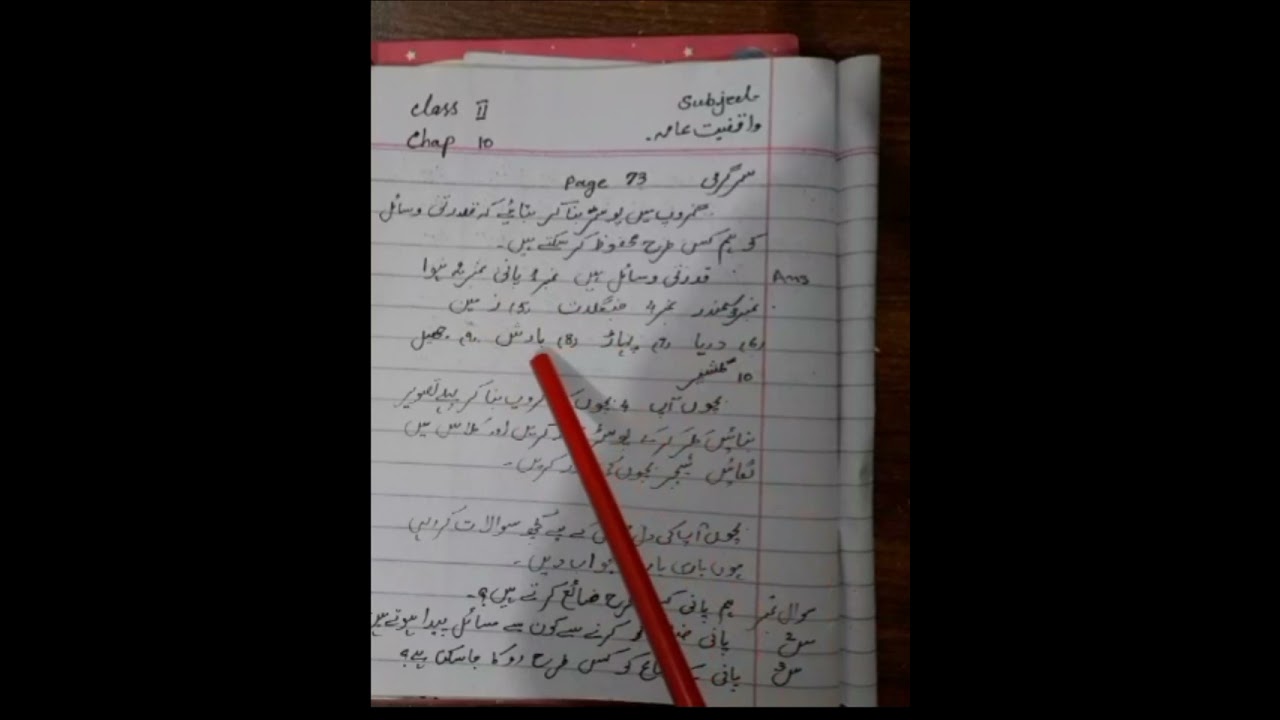 Class II Subject
Chap 10 واقفیت عامہ۔
سرگرمی Page 73
گروپ میں پوسٹر بنا کر بتائیے کہ قدرتی وسائل
کو ہم کس طرح محفوظ کر سکتے ہیں۔
Ans قدرتی وسائل ہیں نمبر1 پانی نمبر2 ہوا
نمبر3 سمندر نمبر4 جنگلات (5) زمین
(6) دریا (7) پہاڑ (8) بارش (9) جھیل
10
بچوں آپ 4 بچوں گروپ بنا کر پہلے تصویر
بنائیں پوسٹر کریں اور کلاس میں
لگائیں ٹیچر بچوں کریں۔
بچوں آپ کی کے لیے کچھ سوالات کر رہی
ہوں باری جواب دیں۔
سوال نمبر ہم پانی طرح ضائع کرتے ہیں؟
س2 پانی کرنے سے کون سے مسائل پیدا ہوتے ہیں
س3 پانی کو کس طرح روکا جا سکتا ہے؟